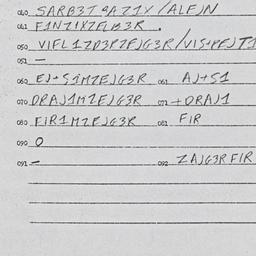 040 SARB3T SAZ1X / ALEJN
041 F1NZ1XZELB3R .
050 VIFL1ZD3PZEJG3R / VIS+PEJT1
051 —
060 EJ+S1MZEJG3R 061 AJ+S1
070 DRAJ1MZEJG3R 071 +DRAJ1
080 FIR1MZEJG3R 081 FIR
090 O
091 — 092 ZAJG3RFIR